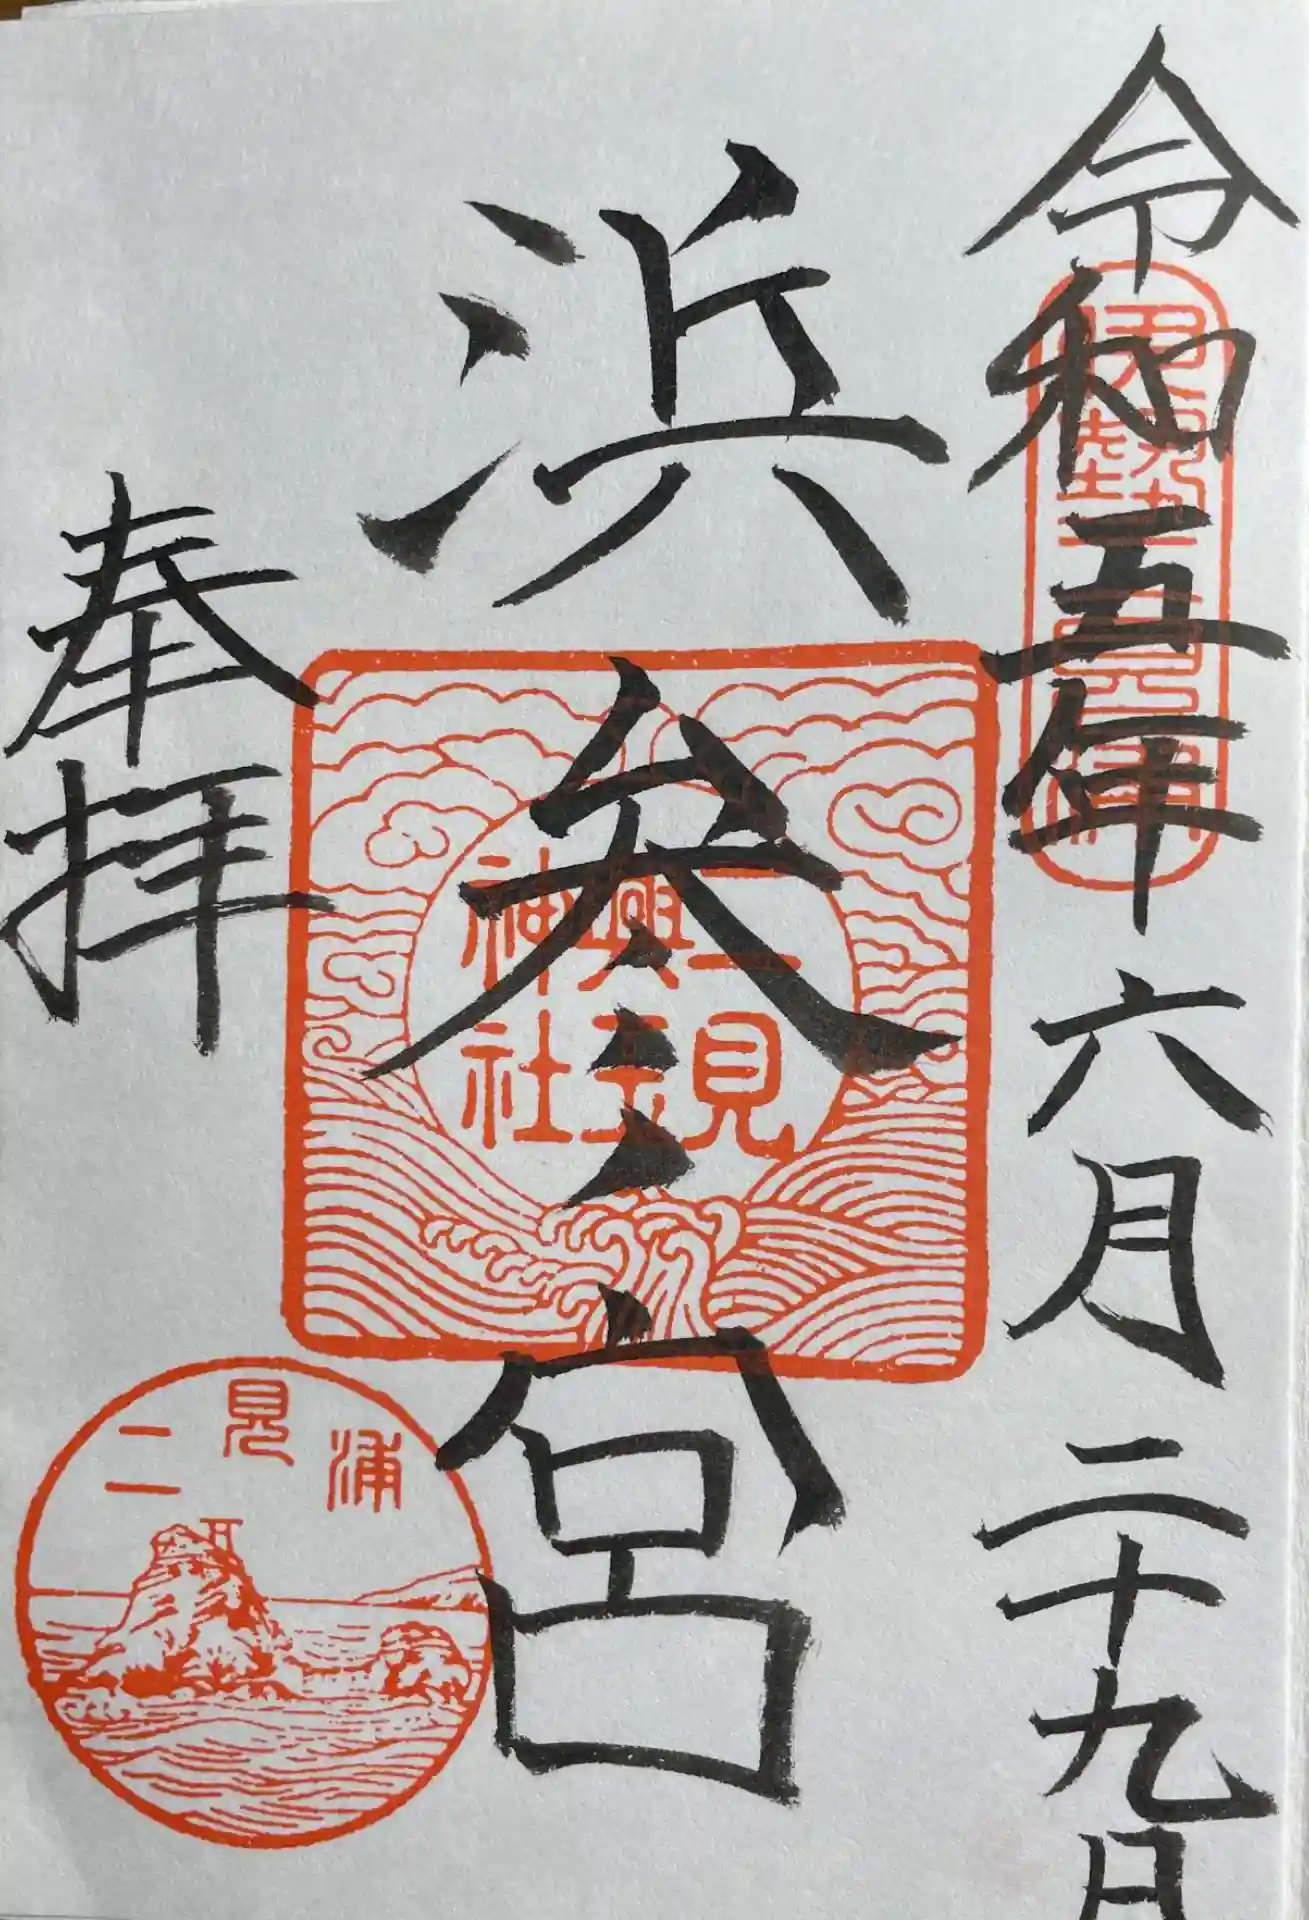 令和五年六月二十九日
伊勢二見浦
浜参宮
二見
興玉
神社
奉拝
二見浦